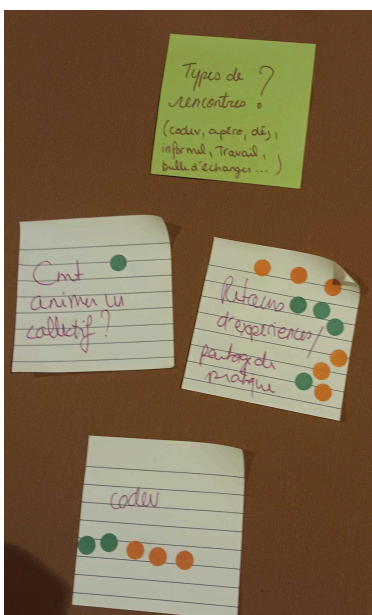 Types de ?
rencontres :
(codev, apéro, déj,
informel, Travail,
bulle d'échanges ... )
Cmt
animer un
collectif ?
Retours
d'expériences/
partage de
pratique
codev